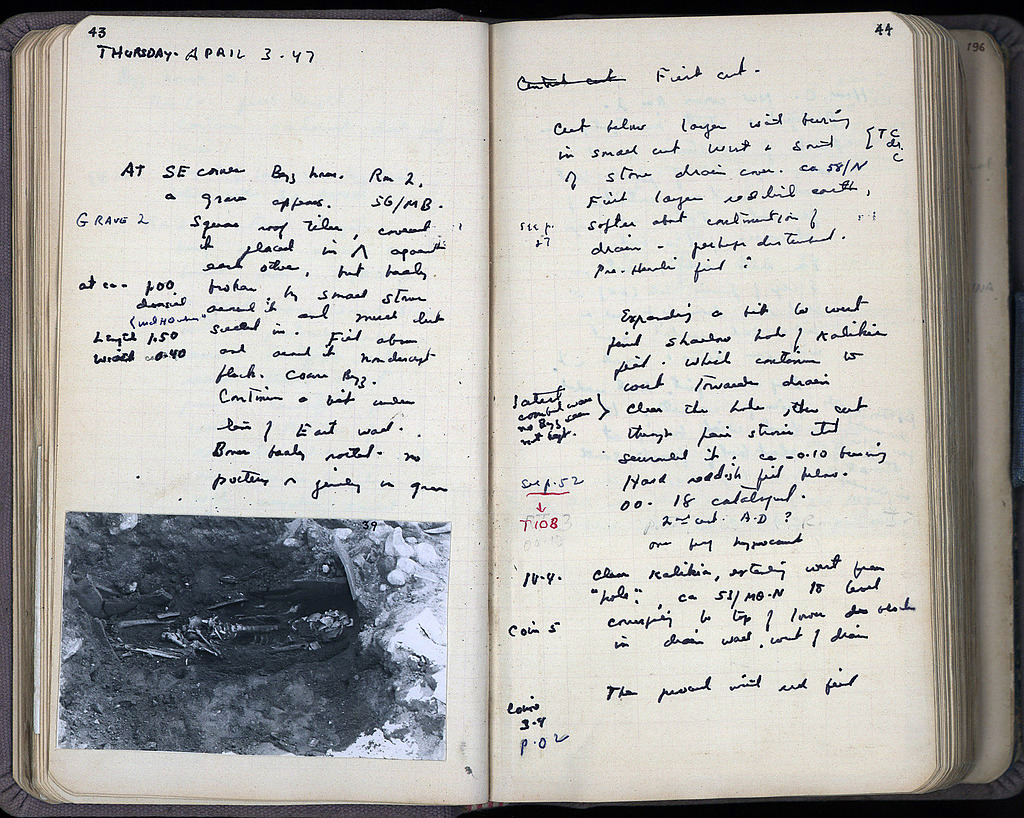 43
THURSDAY - APRIL 3 - 47
At SE corner Byz house. Rm 2,
a grave appears. 56/MB.
GRAVE 2
Square roof tiles, covered
it placed in Λ against
each other, but badly
at ca - 1.00
broken by small stones
around it and
Length 1.50
sealed in. Fill above
Width 0.40
and around it nondescript
flack. Coarse Byz.
Continue a bit under
line of East wall.
Bones badly rotted - no
pottery or jewelry in grave
39
44
Central cut First cut -
Cut below layer with burning
in small cut West & South
{ TC
dr.
C
of stone drain cover. ca 58/N
First layer reddish earth,
see p.
47
softer about continuation of
drain - perhaps disturbed.
fill ?
Expanding a bit to west
find shallow hole of Kalikia
fill. which continues to
west towards drain
Latest
no Byz seen
not kept.
Clear the hole, then cut
through
it. ca -0.10 burning
see p. 52
Hard reddish fill below.
↓
T 108
00. 18 catalogued.
2nd cent. A.D ?
one frag
IV-4.
Clear Kalikia, extending west from
"hole". ca 53/MΘ-N to level
Coin 5
corresponding to top of lower blocks
in drain wall, west of drain
The
red fill
Coins
3-4
p. 02
196